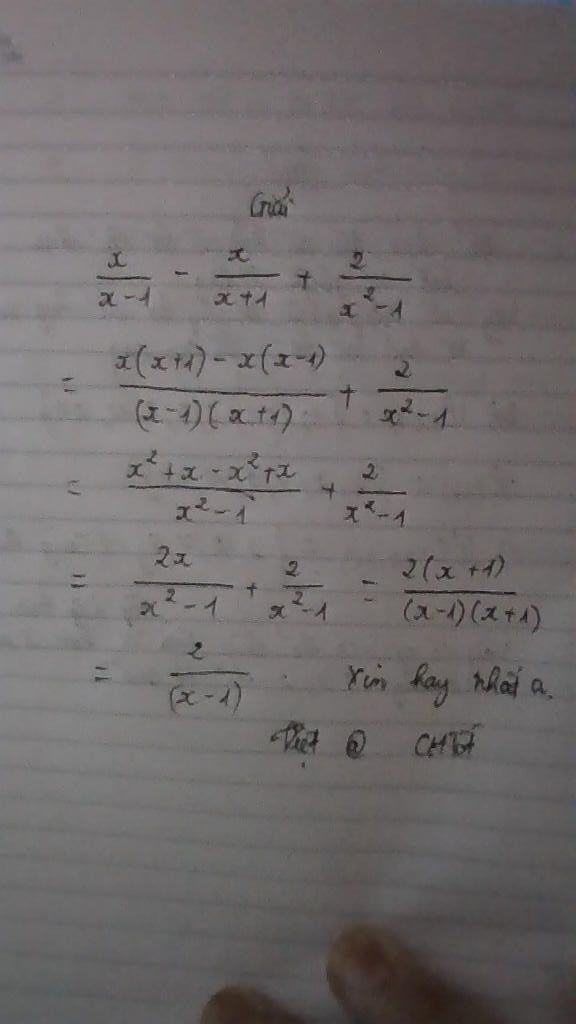 Giải
x/(x-1) - x/(x+1) + 2/(x²-1)
= (x(x+1) - x(x-1))/((x-1)(x+1)) + 2/(x²-1)
= (x²+x-x²+x)/(x²-1) + 2/(x²-1)
= 2x/(x²-1) + 2/(x²-1) = 2(x+1)/((x-1)(x+1))
= 2/(x-1) . xin hay nhất ạ.
Việt @